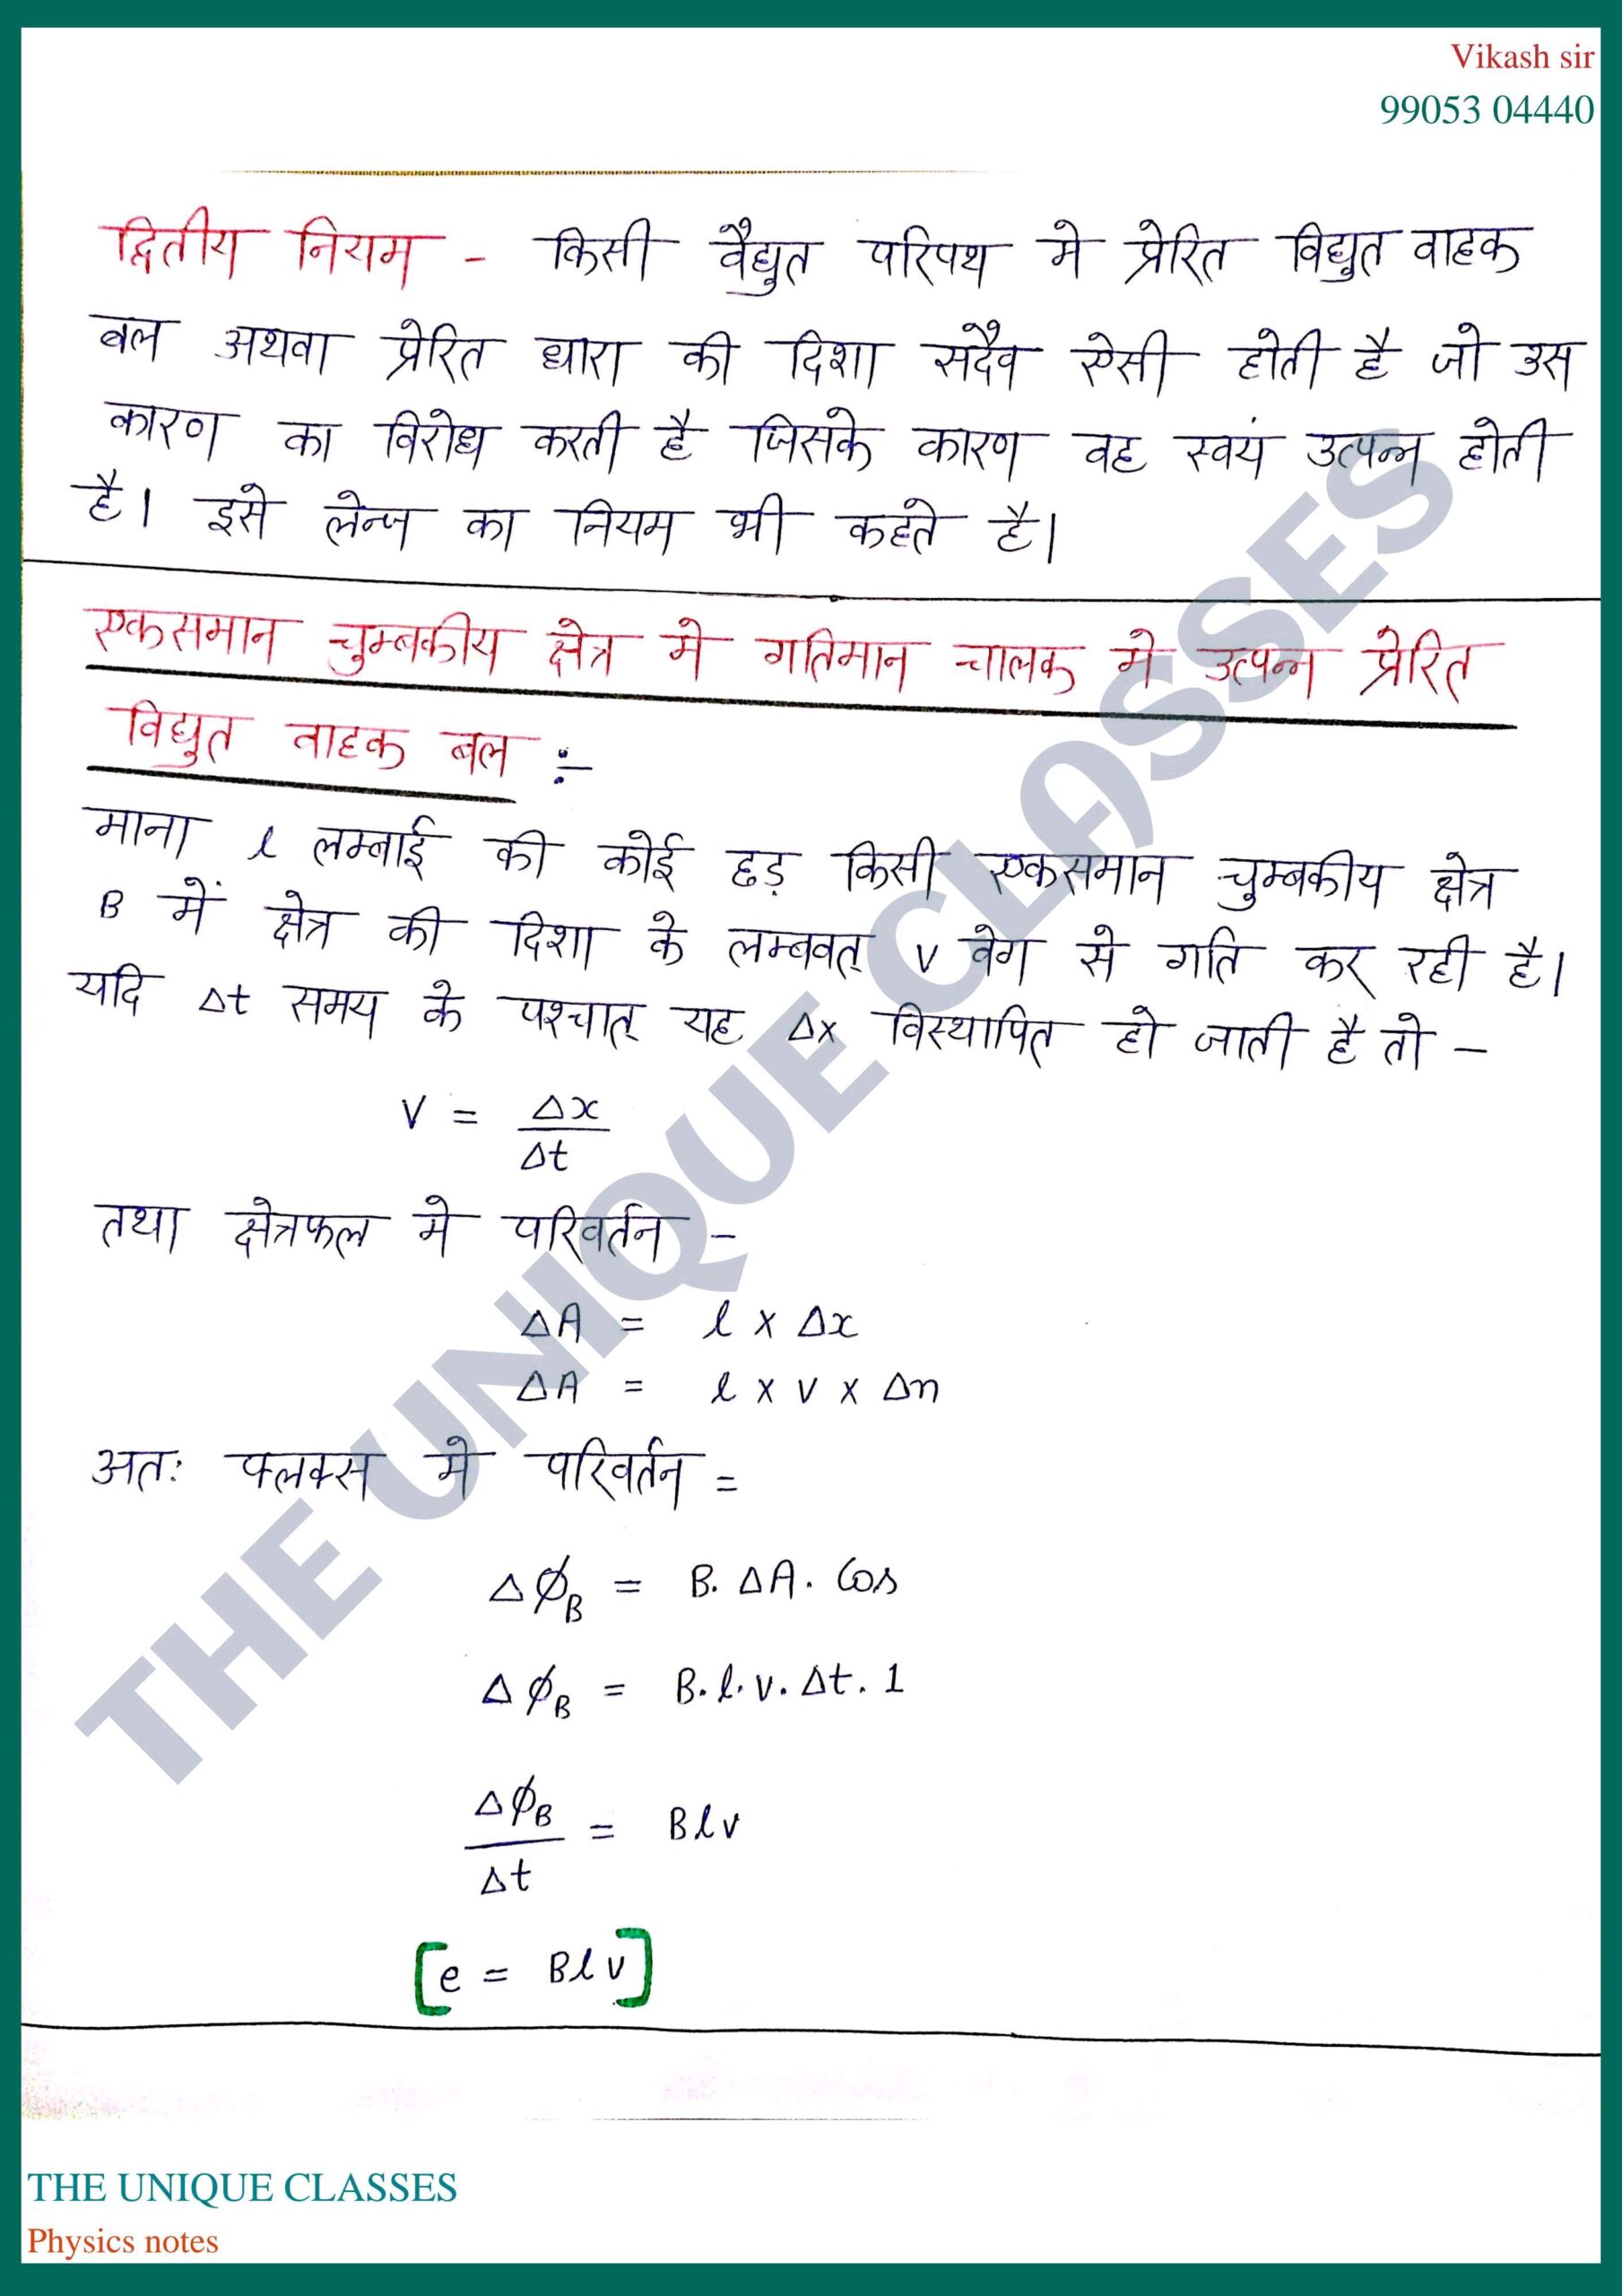 Vikash sir
99053 04440
द्वितीय नियम - किसी वैद्युत परिपथ मे प्रेरित विद्युत वाहक
बल अथवा प्रेरित धारा की दिशा सदैव ऐसी होती है जो उस
कारण का विरोध करती है जिसके कारण वह स्वयं उत्पन्न होती
है। इसे लेन्ज का नियम भी कहते है।
एकसमान चुम्बकीय क्षेत्र मे गतिमान चालक मे उत्पन्न प्रेरित
विद्युत वाहक बल :-
माना l लम्बाई की कोई छड़ किसी एकसमान चुम्बकीय क्षेत्र
B में क्षेत्र की दिशा के लम्बवत् v वेग से गति कर रही है।
यदि Δt समय के पश्चात् यह Δx विस्थापित हो जाती है तो -
V = Δx / Δt
तथा क्षेत्रफल मे परिवर्तन -
ΔA = l x Δx
ΔA = l x v x Δn
अतः फ्लक्स मे परिवर्तन =
Δϕ_B = B. ΔA. Cos
Δϕ_B = B.l.v.Δt.1
Δϕ_B / Δt = Blv
[e = Blv]
THE UNIQUE CLASSES
THE UNIQUE CLASSES
Physics notes